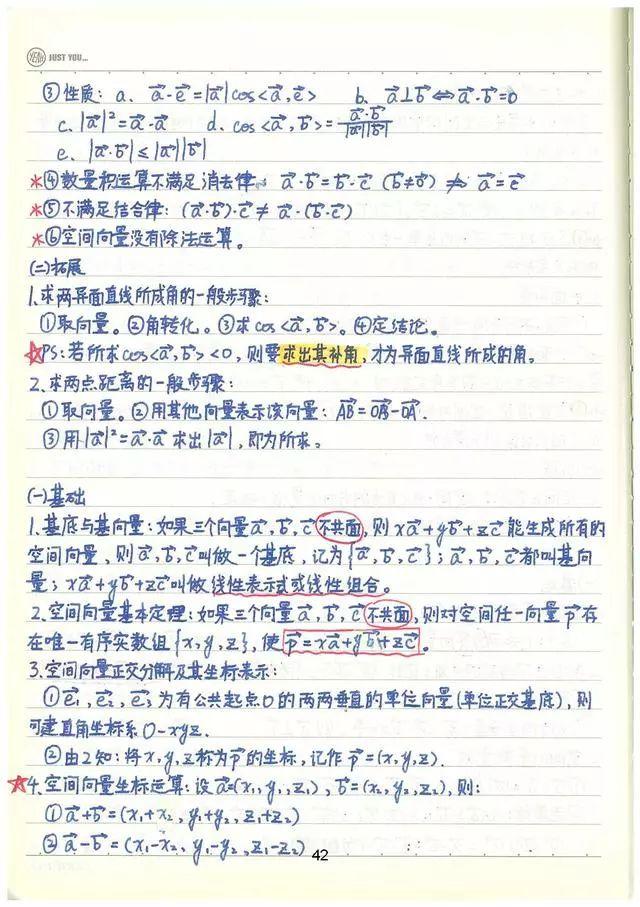 YEAH JUST YOU...
③性质: a. a⃗·e⃗=|a⃗|cos<a⃗,e⃗> b. a⃗⊥b⃗⇔a⃗·b⃗=0
c. |a⃗|²=a⃗·a⃗ d. cos<a⃗,b⃗>=a⃗·b⃗/|a⃗||b⃗|
e. |a⃗·b⃗|≤|a⃗||b⃗|
*④数量积运算不满足消去律。a⃗·b⃗=b⃗·c⃗ (b⃗≠0⃗) ⇏ a⃗=c⃗
*⑤不满足结合律: (a⃗·b⃗)·c⃗≠a⃗·(b⃗·c⃗)
*⑥空间向量没有除法运算。
(二)拓展
1.求两异面直线所成角的一般步骤:
①取向量。②角转化。③求cos<a⃗,b⃗>。④定结论。
☆PS:若所求cos<a⃗,b⃗><0,则要求出其补角,才为异面直线所成的角。
2.求两点距离的一般步骤:
①取向量。②用其他向量表示该向量: AB⃗=OB⃗-OA⃗.
③用|a⃗|²=a⃗·a⃗求出|a⃗|,即为所求。
(一)基础
1.基底与基向量:如果三个向量a⃗,b⃗,c⃗不共面,则xa⃗+yb⃗+zc⃗能生成所有的
空间向量,则a⃗,b⃗,c⃗叫做一个基底,记为{a⃗,b⃗,c⃗};a⃗,b⃗,c⃗都叫基向
量;xa⃗+yb⃗+zc⃗叫做线性表示式或线性组合。
2.空间向量基本定理:如果三个向量a⃗,b⃗,c⃗不共面,则对空间任一向量p⃗存
在唯一有序实数组{x,y,z},使p⃗=xa⃗+yb⃗+zc⃗。
3.空间向量正交分解及其坐标表示:
①e⃗₁,e⃗₂,e⃗₃为有公共起点O的两两垂直的单位向量(单位正交基底),则
可建直角坐标系O-xyz.
②由2知:将x,y,z称为p⃗的坐标,记作p⃗=(x,y,z).
☆4.空间向量坐标运算:设a⃗=(x₁,y₁,z₁),b⃗=(x₂,y₂,z₂),则:
①a⃗+b⃗=(x₁+x₂,y₁+y₂,z₁+z₂)
②a⃗-b⃗=(x₁-x₂,y₁-y₂,z₁-z₂)
42